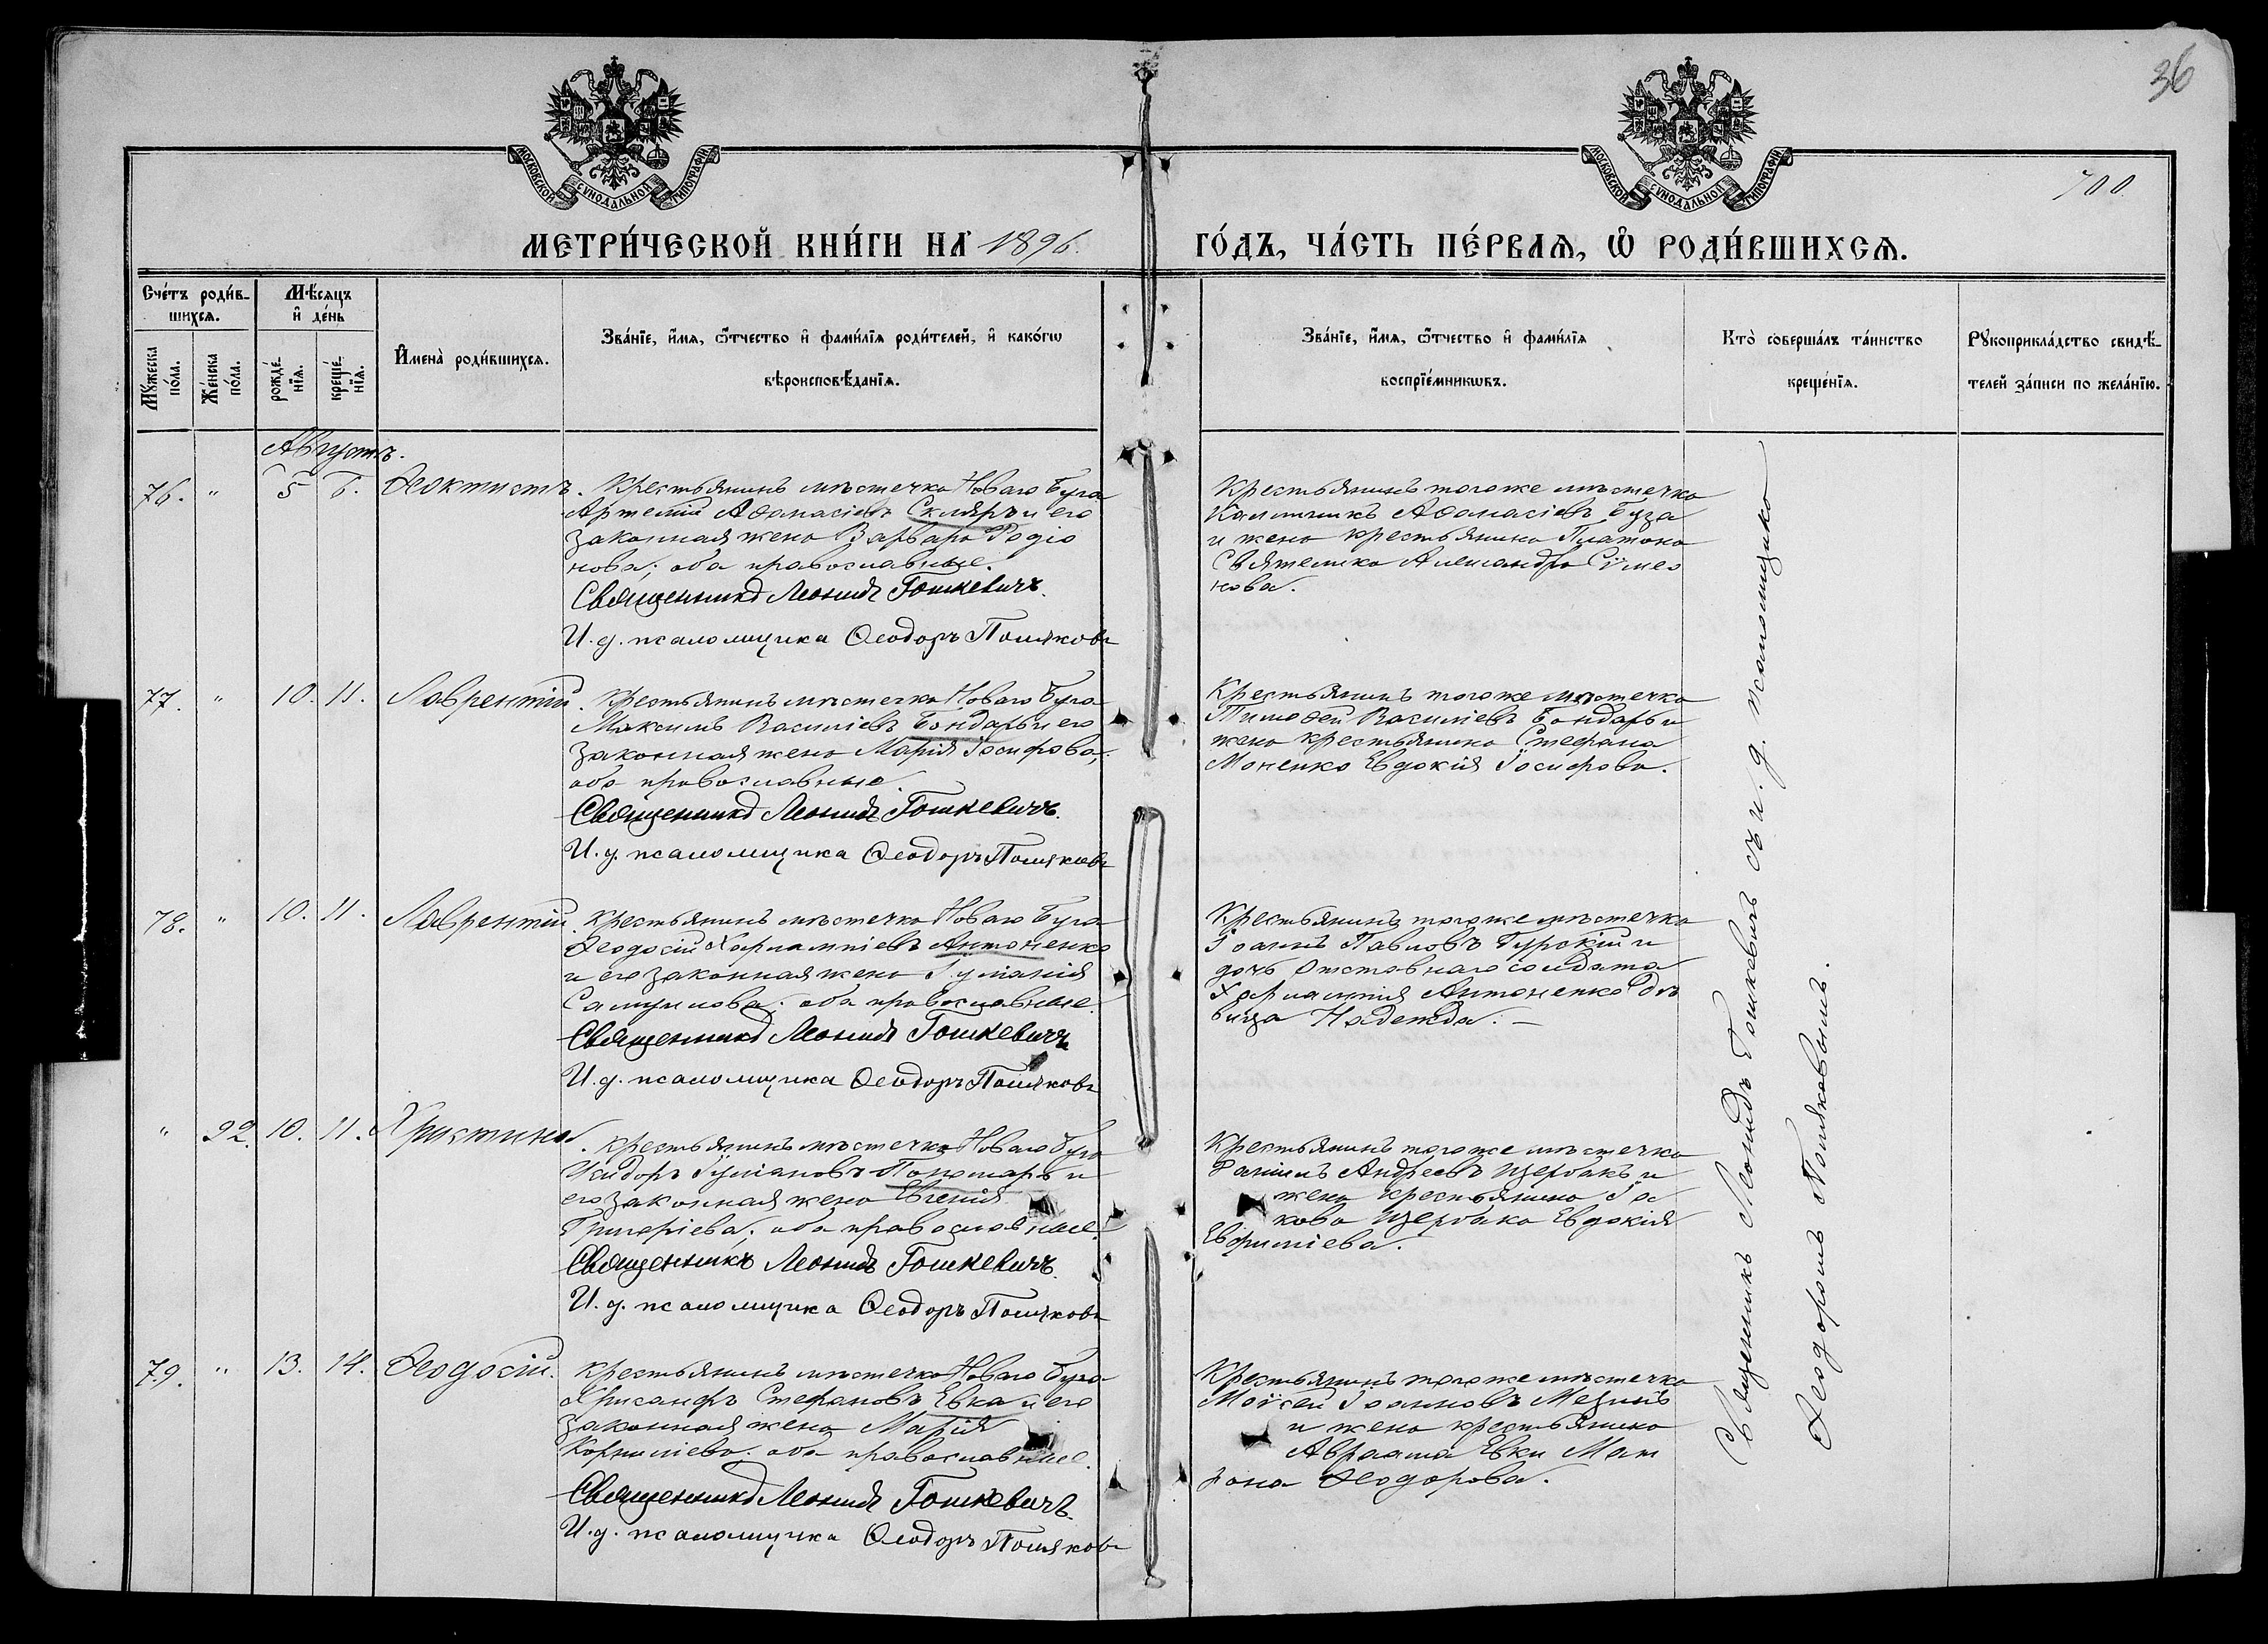 36
700
МОСКОВСКОЙ СѴНОДАЛЬНОЙ ТИПОГРАФІИ
МОСКОВСКОЙ СѴНОДАЛЬНОЙ ТИПОГРАФІИ
МЕТРИ́ЧЕСКОЙ КНИ́ГИ НА 1896. ГО́ДЪ, ЧА́СТЬ ПЕ́РВАЯ, Ѡ҆ РОДИ́ВШИХСѦ.
Сче́тъ роди́в-
шихсѧ.
Мꙋ́жеска по́ла.
Же́нска по́ла.
Мѣ́сѧцъ
и҆ де́нь
рожде́-нїѧ.
креще́-нїѧ.
И҆мена̀ роди́вшихсѧ.
Зва́нїе, и҆́мѧ, ѻ҆́тчество и҆ фами́лїѧ роди́телей, и҆ како́гѡ
вѣроисповѣ́данїѧ.
Зва́нїе, и҆́мѧ, ѻ҆́тчество и҆ фами́лїѧ
воспрїе́мникѡвъ.
Кто̀ соверша́лъ та́инство
креще́нїѧ.
Рꙋкоприкла́дство свидѣ́-
телей за́писи по жела́нїю.
Августъ.
76. " 5 6. Ѳеоктистъ. Крестьянинъ мѣстечка Новаго Буга
Артемій Аѳанасіевъ Скляръ и его
законная жена Варвара Родіо
нова; оба православные.
Священникъ Леонидъ Гошкевичъ.
И. д. псаломщика Ѳеодоръ Поляковъ
Крестьянинъ тогоже мѣстечка
Каллиникъ Аѳанасіевъ Буза
и жена крестьянина Платона
Святенка Александра Сѵмео
нова.
77. " 10. 11. Лаврентій. Крестьянинъ мѣстечка Новаго Буга
Максимъ Василіевъ Бондарь и его
законная жена Марія Іосифова;
оба православные.
Священникъ Леонидъ Гошкевичъ.
И. д. псаломщика Ѳеодоръ Поляковъ
Крестьянинъ тогоже мѣстечка
Тимоѳей Василіевъ Бондарь и
жена крестьянина Стефана
Моненко Евдокія Іосифова.
78. " 10. 11. Лаврентій. Крестьянинъ мѣстечка Новаго Буга
Ѳеодосій Харлампіевъ Антоненко
и его законная жена Іуліанія
Самуилова; оба православные.
Священникъ Леонидъ Гошкевичъ
И. д. псаломщика Ѳеодоръ Поляковъ
Крестьянинъ тогоже мѣстечка
Іоаннъ Павловъ Гурскій и
дочь отставнаго солдата
Харлампія Антоненко дѣ
вица Надежда. —
" 22. 10. 11. Христина. Крестьянинъ мѣстечка Новаго Буга
Исидоръ Іуліановъ Пономарь и
его законная жена Евгенія
Григоріева; оба православные.
Священникъ Леонидъ Гошкевичъ.
И. д. псаломщика Ѳеодоръ Поляковъ
Крестьянинъ тогоже мѣстечка
Даніилъ Андреевъ Щербакъ и
жена крестьянина Іа
кова Щербака Евдокія
Евфиміева.
79. " 13. 14. Ѳеодосій. Крестьянинъ мѣстечка Новаго Буга
Хрисанфъ Стефановъ Евка и его
законная жена Марія
Корниліева; оба православные.
Священникъ Леонидъ Гошкевичъ.
И. д. псаломщика Ѳеодоръ Поляковъ
Крестьянинъ тогоже мѣстечка
Моѵсей Іоанновъ
и жена крестьянина
Авраама Евки Мат
рона Ѳеодорова.
Священникъ Леонидъ Гошкевичъ съ и. д. псаломщика
Ѳеодоромъ Поляковымъ.